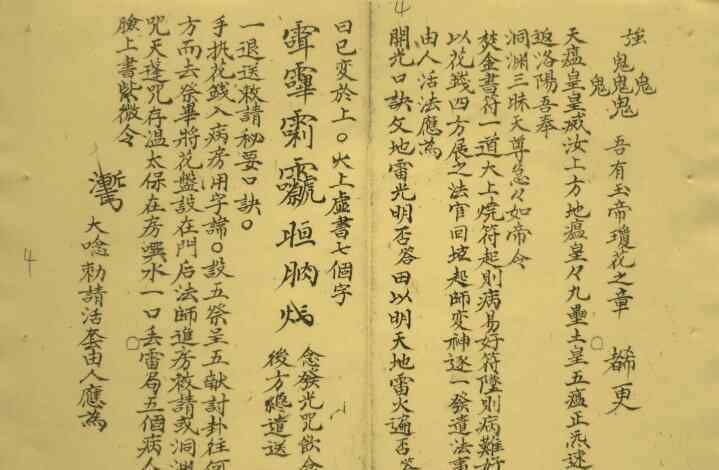 強 鬼鬼鬼鬼鬼 吾有玉帝瓊花之章
天瘟皇皇威汝上方地瘟皇々九壘土皇五瘟正炁速
返洛陽吾奉
洞渊三昧天尊急々如帝令
焚金書符一道大上燒符起則病易好符墜則病難好
以花錢四方展之法官回壇起師變神逐一發遣法事
由人活法應為
開光口訣攵地雷光明否答曰以明天地雷火遍否答
曰已變於上〇火上虛書七個字
念發光咒飲
後方 遣送
一退送敕請秘要口訣〇
手执花錢入病房用字諱〇設五祭呈五献討卦往何
方而去祭畢將花盤設在門后法師進房敕請或洞渊
咒天蓬咒存温太保在房噀水一口丢雷局五個病人
臉上書紫微令
大唸勅請活套由人應為
4
4